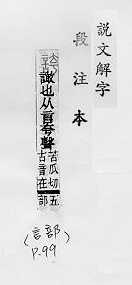 說文解字
段注本
譀也从言夸聲
苦瓜切五
古音在部
(言部)
P.99